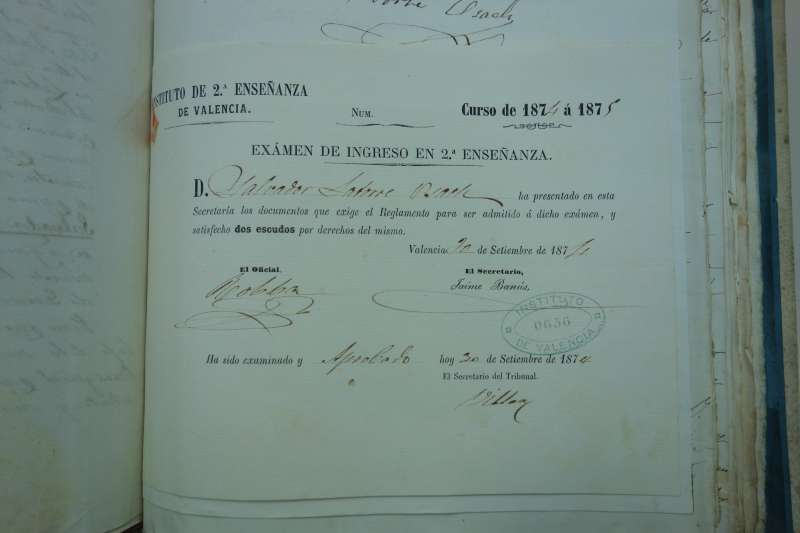 Osach
INSTITUTO DE 2.ª ENSEÑANZA
DE VALENCIA.
NUM.
Curso de 1874 á 1875
EXÁMEN DE INGRESO EN 2.ª ENSEÑANZA.
D. Salvador Latorre Osach ha presentado en esta
Secretaría los documentos que exige el Reglamento para ser admitido á dicho exámen, y
satisfecho dos escudos por derechos del mismo.
Valencia 30 de Setiembre de 1874
El Oficial.
El Secretario,
Robba
Jaime Banús.
INSTITUTO
0636
DE VALENCIA
Ha sido examinado y Aprobado hoy 30 de Setiembre de 1874
El Secretario del Tribunal.